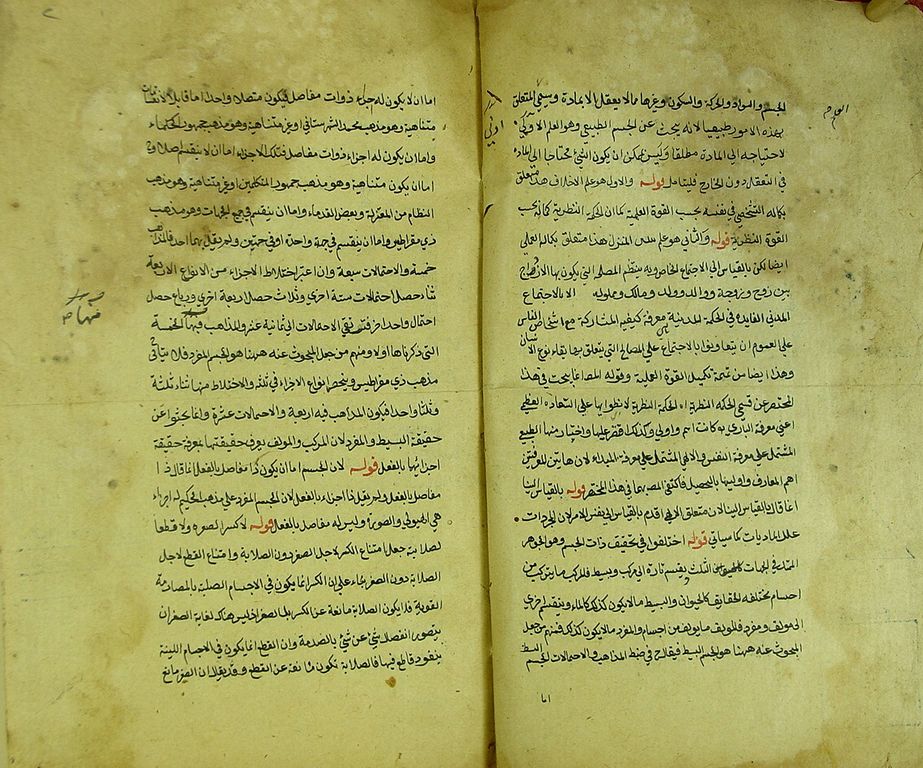 الجسم والمواد والحركة والسكون وغيرها مما لا يعقل الا بمادة ويسمى المتعلق
بهذه الامور طبيعيا لانه يبحث عن الجسم الطبيعي وهو العلم الاولى
لاحتياجه الى المادة مطلقا وليس يمكن ان يكون الشئ محتاجا الى المادة
في التعقل دون الخارج فليتامل قوله والاول هو علم الاخلاق هذا متعلق
بكماله الشخصي في نفسه بحسب القوة العملية كما ان الحكمة النظرية كماله بحسب
القوة النظرية قوله والثاني هو علم المنزل هذا متعلق بكماله العملي
ايضا لكن بالقياس الى الاجتماع الخاص وبه ينتظم المصلحة التي يكون بها الازدواج
بين زوج وزوجة ووالد وولد ومالك ومملوك الا بالاجتماع
المدني الفايدة في الحكمة المدنية معرفة كيفية المشاركة مع اشخاص الناس
على العموم ان يتعاونوا بالاجتماع على المصالح التي يتعلق بها بقاء نوع الانسان
وهذا ايضا من تتمة تكميل القوة العملية وقوله المص اغا يبحث في هذا
المختصر عن قسمي الحكمة النظرية لانطوائها على السعادة العظمى
اعني معرفة الباري به كانت اهم واولى وكذلك اقتصر عليها واختار منها الطبيعي
المشتمل على معرفة النفس والالهي المشتمل على معرفة المبداء لان هاتين المعرفتين
اهم المعارف واوليها بالتحصيل فاكتفى المص بهما في هذا المختصر قوله بالقياس الينا
انما قال بالقياس الينا لان متعلق الالهي اقدم بالقياس الى نفس الامر لان المجردات
علل الماديات كما سياتي قوله اختلفوا في تحقيق ذات الجسم وهو الجوهر
الممتد في الجهات الثلث ينقسم تارة الى مركب وبسيط فالمركب ما يتركب من
اجسام مختلفة الحقايق كالحيوان والبسيط ما لا يكون كذلك كالماء وينقسم اخرى
الى مولف ومفرد فالمولف ما يولف من اجسام والمفرد ما لا يكون كذلك فمنهم من جعل
المبحوث عنه ههنا هو الجسم البسيط فيقلا ح في ضبط المذاهب والاحتمالات الجسم البسيط
اما
اما ان لا يكون له اجزاء ذوات مفاصل فيكون متصلا واحدا اما قابلا لانقسامات
متناهية وهو مذهب محمد الشهرستاني او غير متناهية وهو مذهب جمهور الحكماء
واما ان يكون له اجزاء ذوات مفاصل فتلك الاجزاء اما ان لا ينقسم اصلا وح
اما ان يكون متناهية وهو مذهب جمهور المتكلمين او غير متناهية وهو مذهب
النظام من المعتزلة وبعض القدماء واما ان ينقسم في جميع الجهات وهو مذهب
ذي مقراطيس واما ان ينقسم في جهة واحدة او في جهتين ولم يقل بهما احد فالمذاهب
خمسة والاحتمالات سبعة وان اعتبر اختلاط الاجزاء من الانواع الاربعة
ثناء حصل احتمالات ستة اخرى وثلاث حصل اربعة اخرى ورباع حصل
احتمال واحد اخر فترتقي الاحتمالات الى ثمانية عشر والمذاهب فيها الخمسة
التي ذكرناها اولا ومنهم من جعل المبحوث عنه ههنا هو الجسم المفرد فلا يتاتى
مذهب ذي مقراطيس وينحصر انواع الاجزاء في ثلثة والاختلاط منها ثناء ثلثة
وثلثا واحدا فيكون المذاهب فيه اربعة والاحتمالات عشرة وانما يبحثوا عن
حقيقة البسيط والمفرد لان المركب والمولف يعرف حقيقتهما بمعرفة حقيقة
اجزائهما بالفعل قوله لان الجسم اما ان يكون ذا مفاصل بالفعل انما قال ذا
مفاصل بالفعل ولم يقل ذا اجزاء بالفعل لان الجسم المفرد على مذهب الحكيم له اجزاء
هي الهيولى والصورة وليس له مفاصل بالفعل قوله لا كسرا لصغره ولا قطعا
لصلابة جعل امتناع الكسر لاجل الصغر دون الصلابة وامتناع القطع لاجل
الصلابة دون الصغر بناء على ان الكسر انما يكون في الاجسام الصلبة بالمصادمة
القوية فلا يكون الصلابة مانعة عن الكسر بل الصغر اذ ليس هناك لغاية الصغر ان
يتصور انفصال شئ عن شئ بالصدمة وان القطع انما يكون في الاجسام اللينة
بنفوذ قاطع فيها فالصلابة تكون مانعة عن القطع وقد يقال ان الصغر مانع